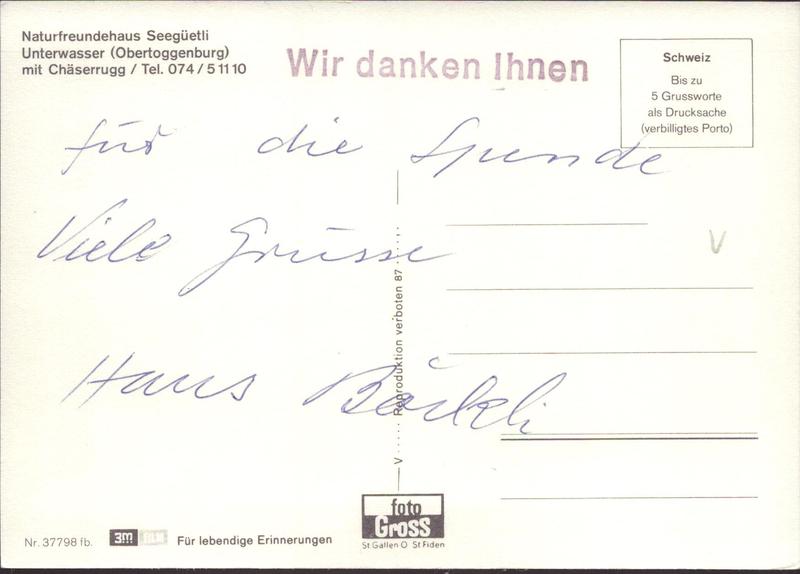 Naturfreundehaus Seegüetli
Unterwasser (Obertoggenburg)
mit Chäserrugg / Tel. 074 / 5 11 10
Wir danken Ihnen
Schweiz
Bis zu
5 Grussworte
als Drucksache
(verbilligtes Porto)
für die Spende
Viele Grüsse
Hans
V
V ..... Reproduktion verboten 87 .....
foto
Gross
St Gallen O St Fiden
Nr. 37798 fb.
3M FILM
Für lebendige Erinnerungen